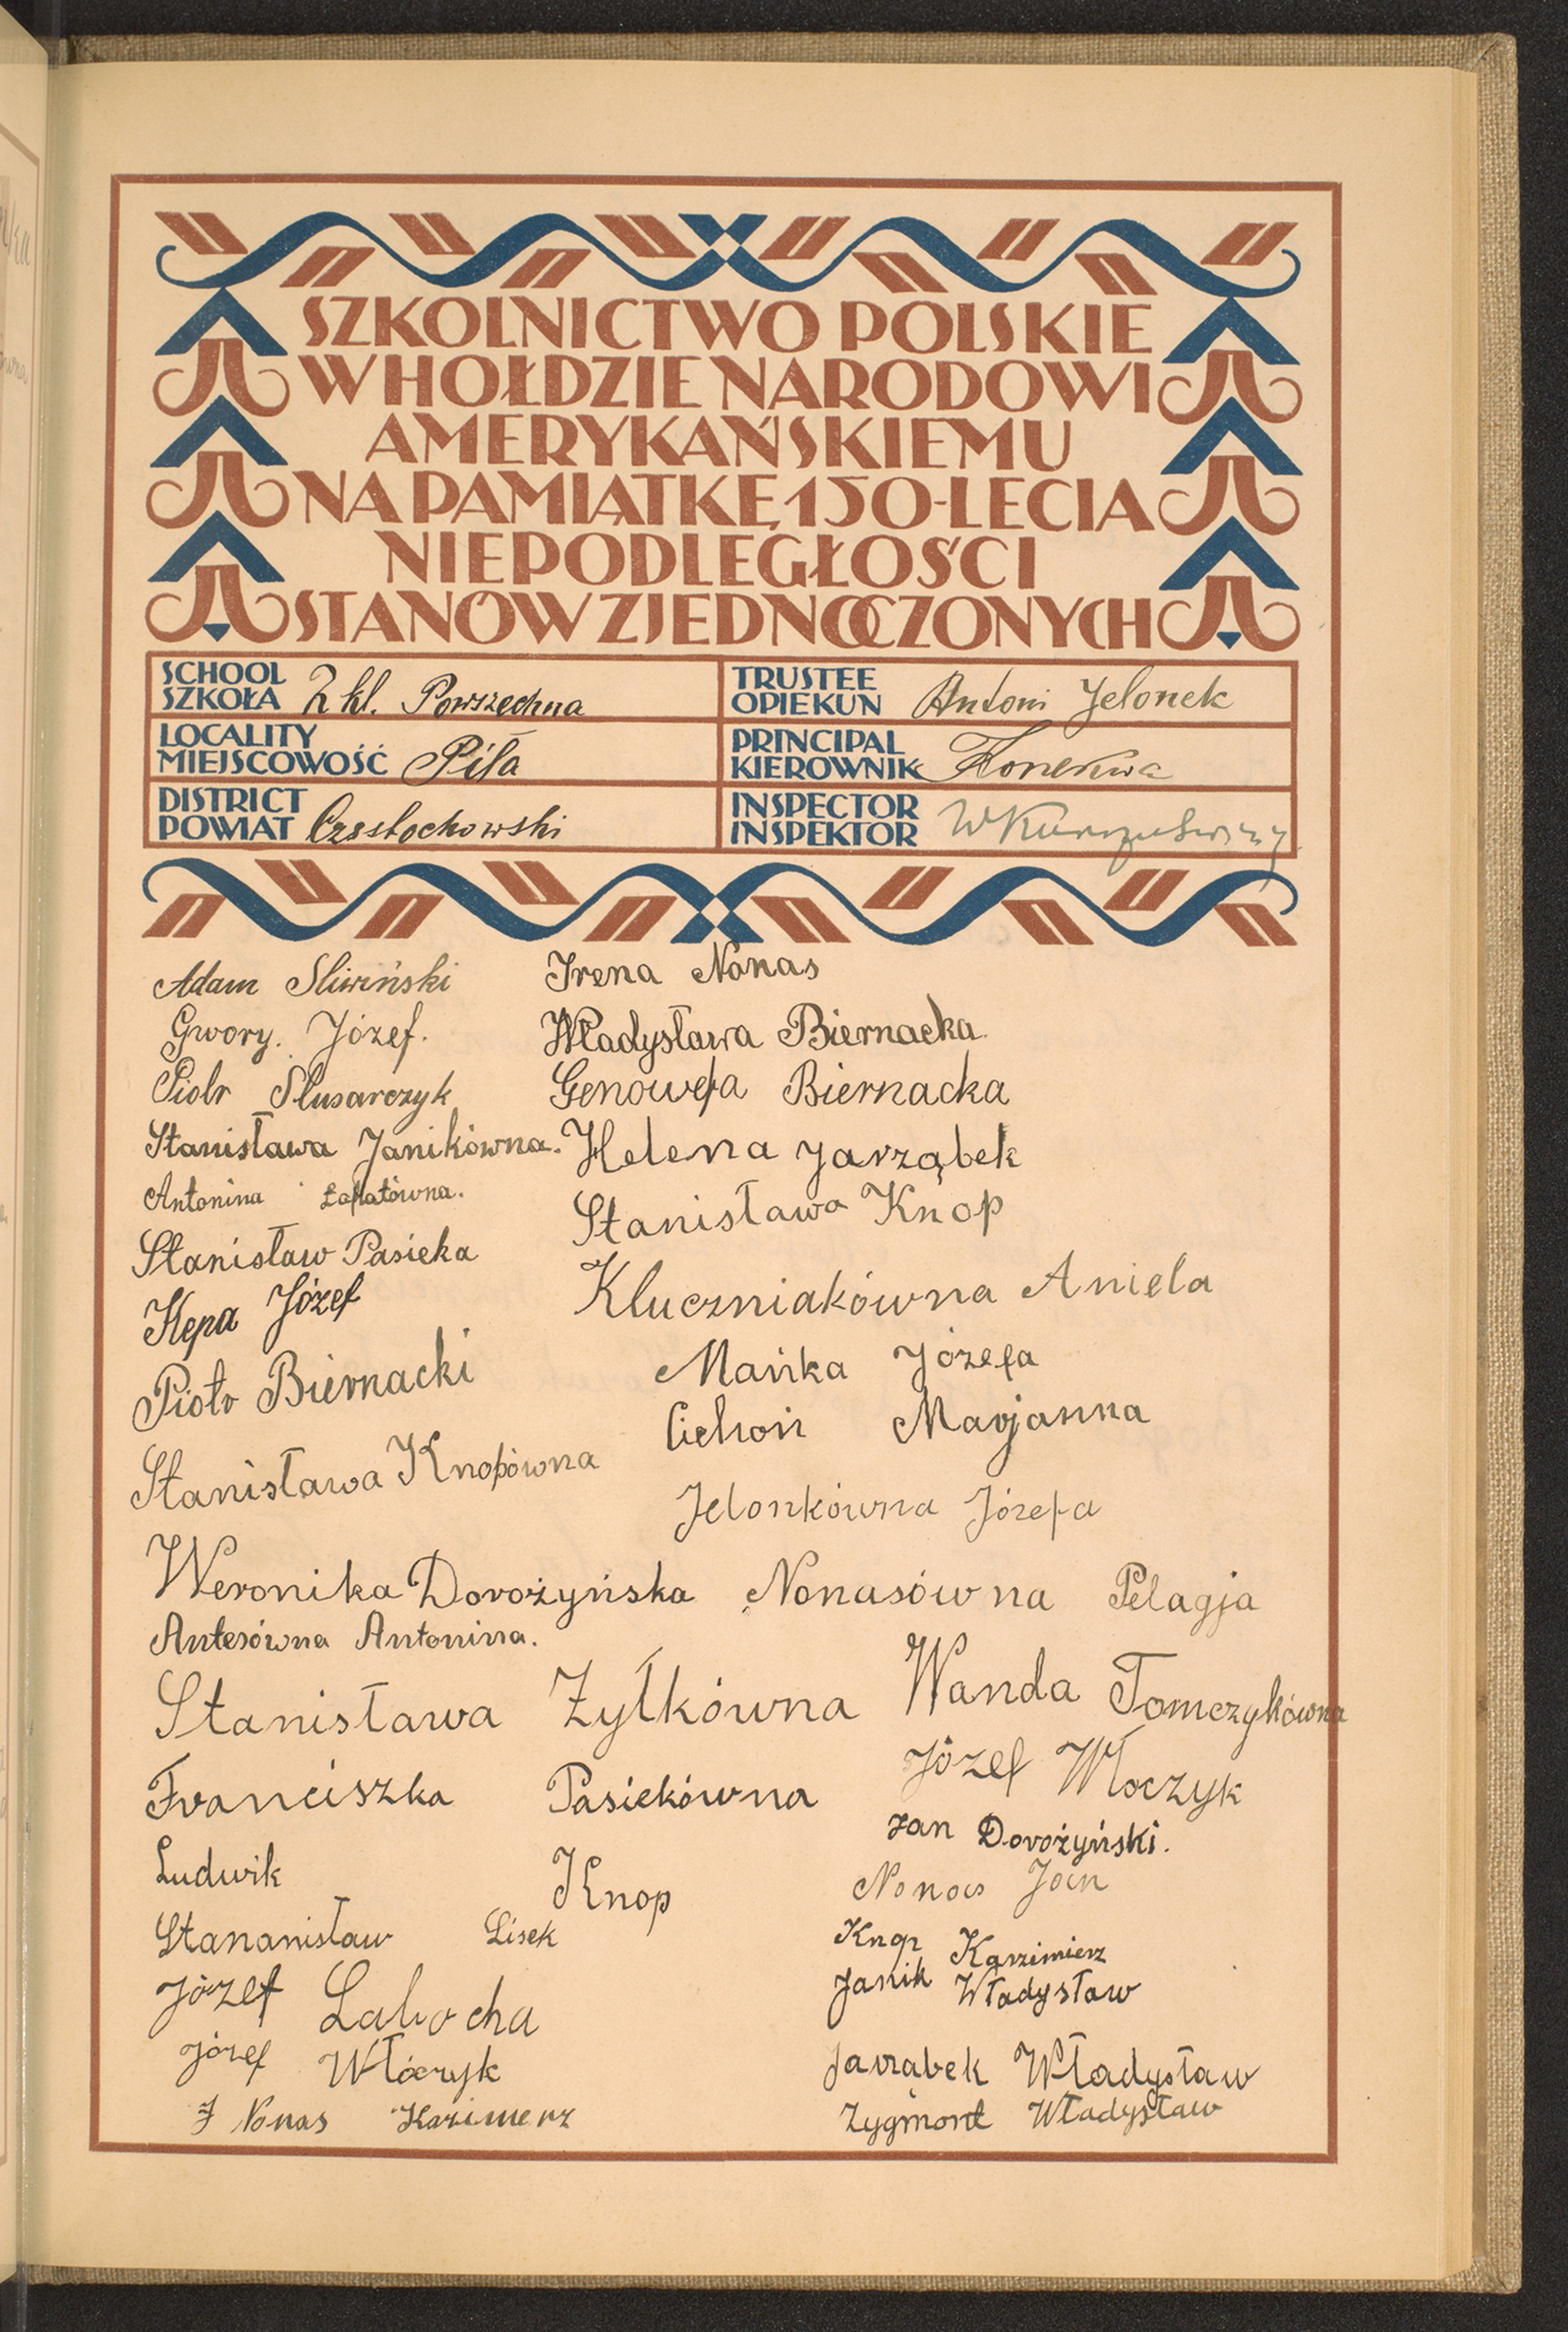 SZKOLNICTWO POLSKIE
W HOŁDZIE NARODOWI
AMERYKAŃSKIEMU
NA PAMIĄTKĘ 150-LECIA
NIEPODLEGŁOŚCI
STANÓW ZJEDNOCZONYCH
SCHOOL
SZKOŁA 2 kl. Powszechna
TRUSTEE
OPIEKUN Antoni Jelonek
LOCALITY
MIEJSCOWOŚĆ Piła
PRINCIPAL
KIEROWNIK
DISTRICT
POWIAT Częstochowski
INSPECTOR
INSPEKTOR
Adam Sliwiński
Gwory. Józef.
Piotr Slusarczyk
Stanisława Janikówna.
Antonina Łapatówna.
Stanisław Pasieka
Kępa Józef
Piotr Biernacki
Stanisława Knopówna
Weronika Dorożyńska
Antesówna Antonina.
Stanisława Żyłkówna
Franciszka Pasiekówna
Ludwik Knop
Stananisław Lisek
Józef Labocha
Józef Włóczyk
J Nonas Kazimerz
Irena Nonas
Władysława Biernacka.
Genowefa Biernacka
Helena Jarząbek
Stanisława Knop
Kluczniakówna Aniela
Mańka Józefa
Cichoń Marjanna
Jelonkówna Józefa
Nonasówna Pelagja
Wanda Tomczykówna
Józef Włoczyk
Jan Dorożyński.
Nonas Jan
Knop Kazimierz
Janik Władysław
Jarząbek Władysław
Zygmont Władysław